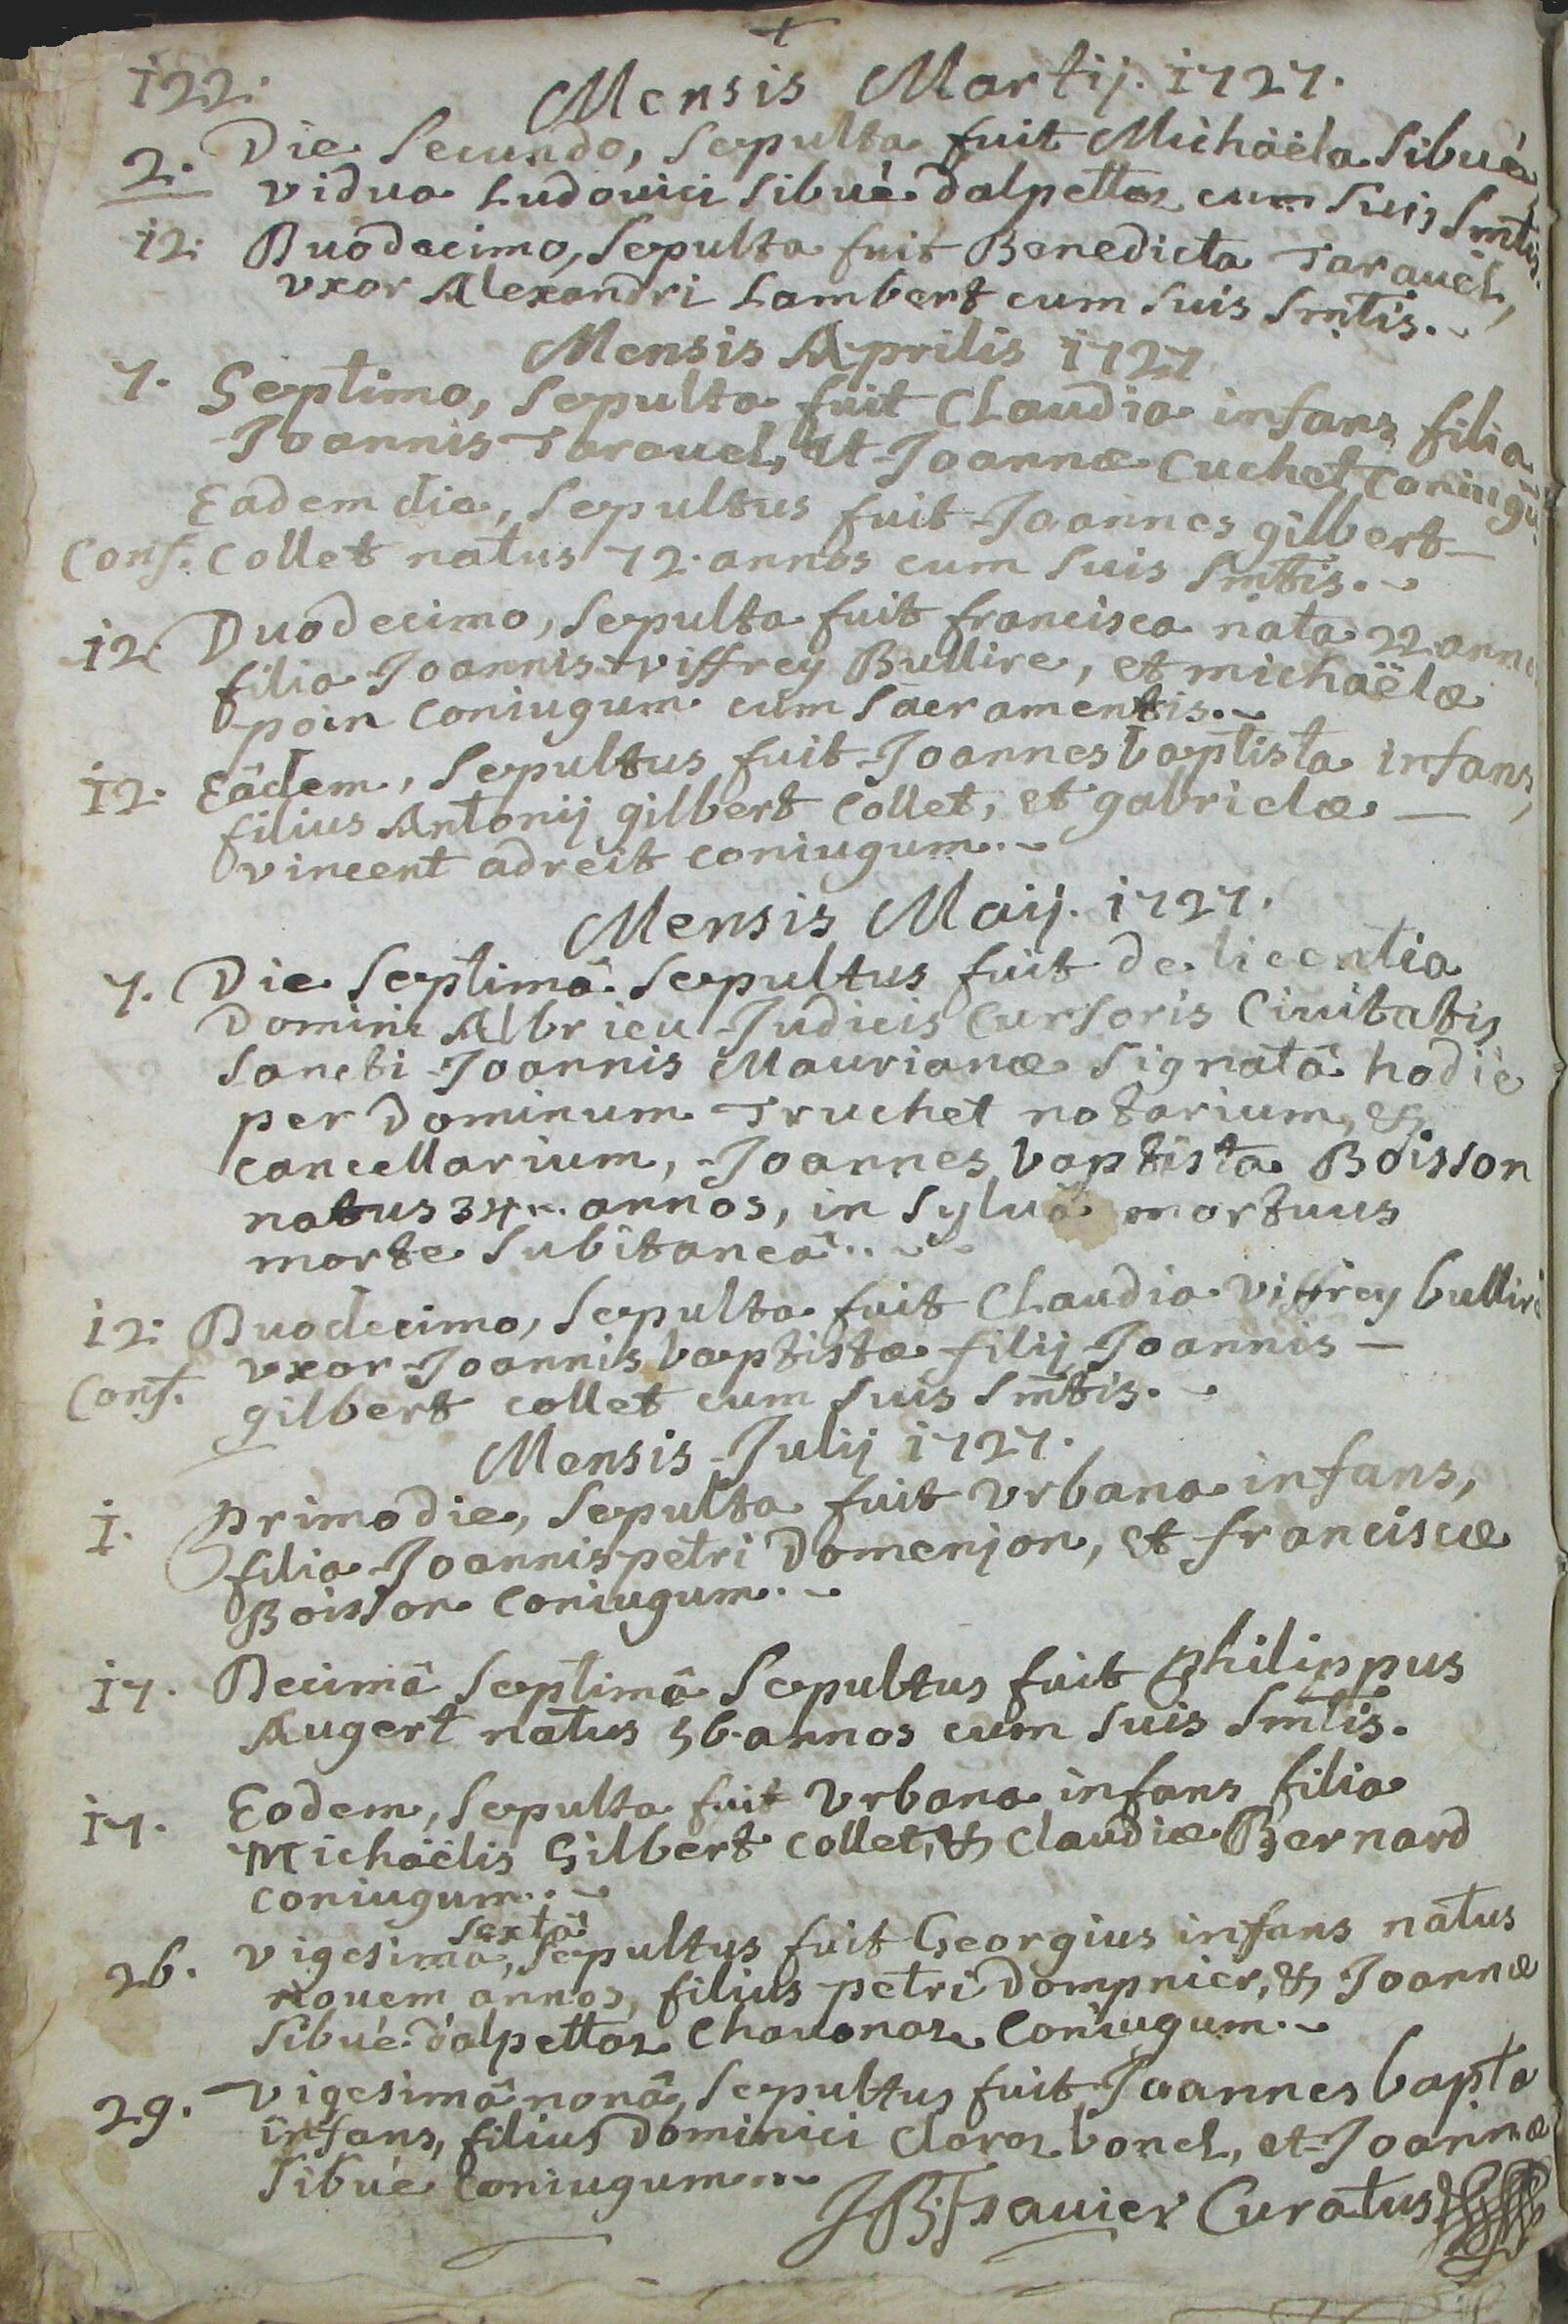 +
122.
Mensis Martij. 1727.
2. Die Secundo, Sepulta fuit Michaëla Sibué
vidua Ludovici Sibué dalpettaz cum Suis Smtis.
12. Duodecimo, Sepulta fuit Benedicta Taravel,
vxor Alexandri Lambert cum Suis Smtis.
Mensis Aprilis 1727
7. Septimo, Sepulta fuit Claudia infans filia
Joannis Taravel, et Joannæ Cuchet Coniugū.
Eadem die, Sepultus fuit Joannes gilbert
Conf. Collet natus 72. annos cum Suis Smtis.
12 Duodecimo, Sepulta fuit francisca nata 22 anno
filia Joannis viffrey Bullire, et michaëlæ
poin Coniugum cum Sacramentis.
12. Eâdem, Sepultus fuit Joannes baptista infans,
filius Antonij gilbert Collet, et gabrielæ
vincent adreit coniugum.
Mensis Maij. 1727.
7. Die Septimâ Sepultus fuit de licentia
Domini Albrieu Judicis Cursoris Civitatis
Sancti Joannis Maurianæ Signatâ hodiè
per Dominum Truchet notarium, &
cancellarium, Joannes baptista Boisson
natus 34. annos, in Syluâ mortuus
morte Subitaneâ..
12. Duodecimo, Sepulta fuit Claudia viffrey bullire
vxor Joannis baptistæ filij Joannis
Conf. gilbert collet cum Suis Smtis.
Mensis Julij 1727.
1. primo die, Sepulta fuit Vrbana infans,
filia Joannis petri Domenjon, et franciscæ
Boisson Coniugum.
17. Decimâ Septimâ Sepultus fuit Philippus
Augert natus 56. annos cum Suis Smtis.
17. Eodem, Sepulta fuit Vrbana infans filia
Michaëlis Gilbert Collet, & Claudiæ Bernard
coniugum..
sextâ
26. vigesimâ, Sepultus fuit Georgius infans natus
novem annos, filius petri Dompnier, & Joannæ
Sibué dalpettaz Chavonaz Coniugum.
29. vigesimâ nonâ, Sepultus fuit Joannes bapta
infans, filius Dominici Claraz bonel, et Joannæ
Sibué Coniugum
JB Travier Curatus